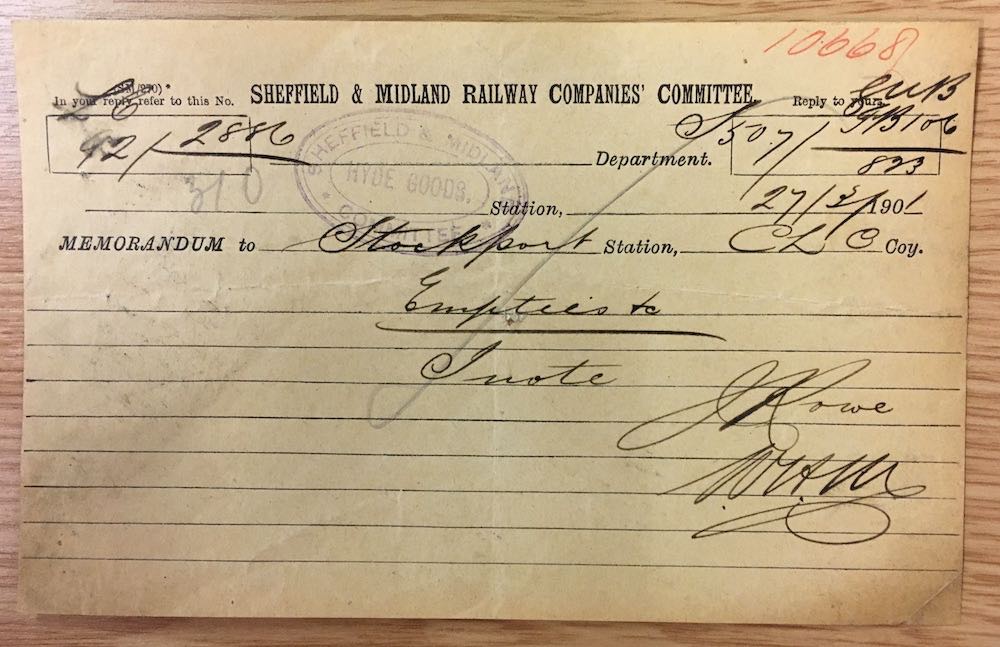 10668
(S.M./270)*
In your reply refer to this No.
SHEFFIELD & MIDLAND RAILWAY COMPANIES' COMMITTEE,
Reply to yours
LC
92/2886
S507/
893
310
SHEFFIELD & MIDLAND
HYDE GOODS.
COMMITTEE
Department.
Station, 27/3/1901
MEMORANDUM to Stockport Station, CLC Coy.
Empties &c
I note
J Rowe